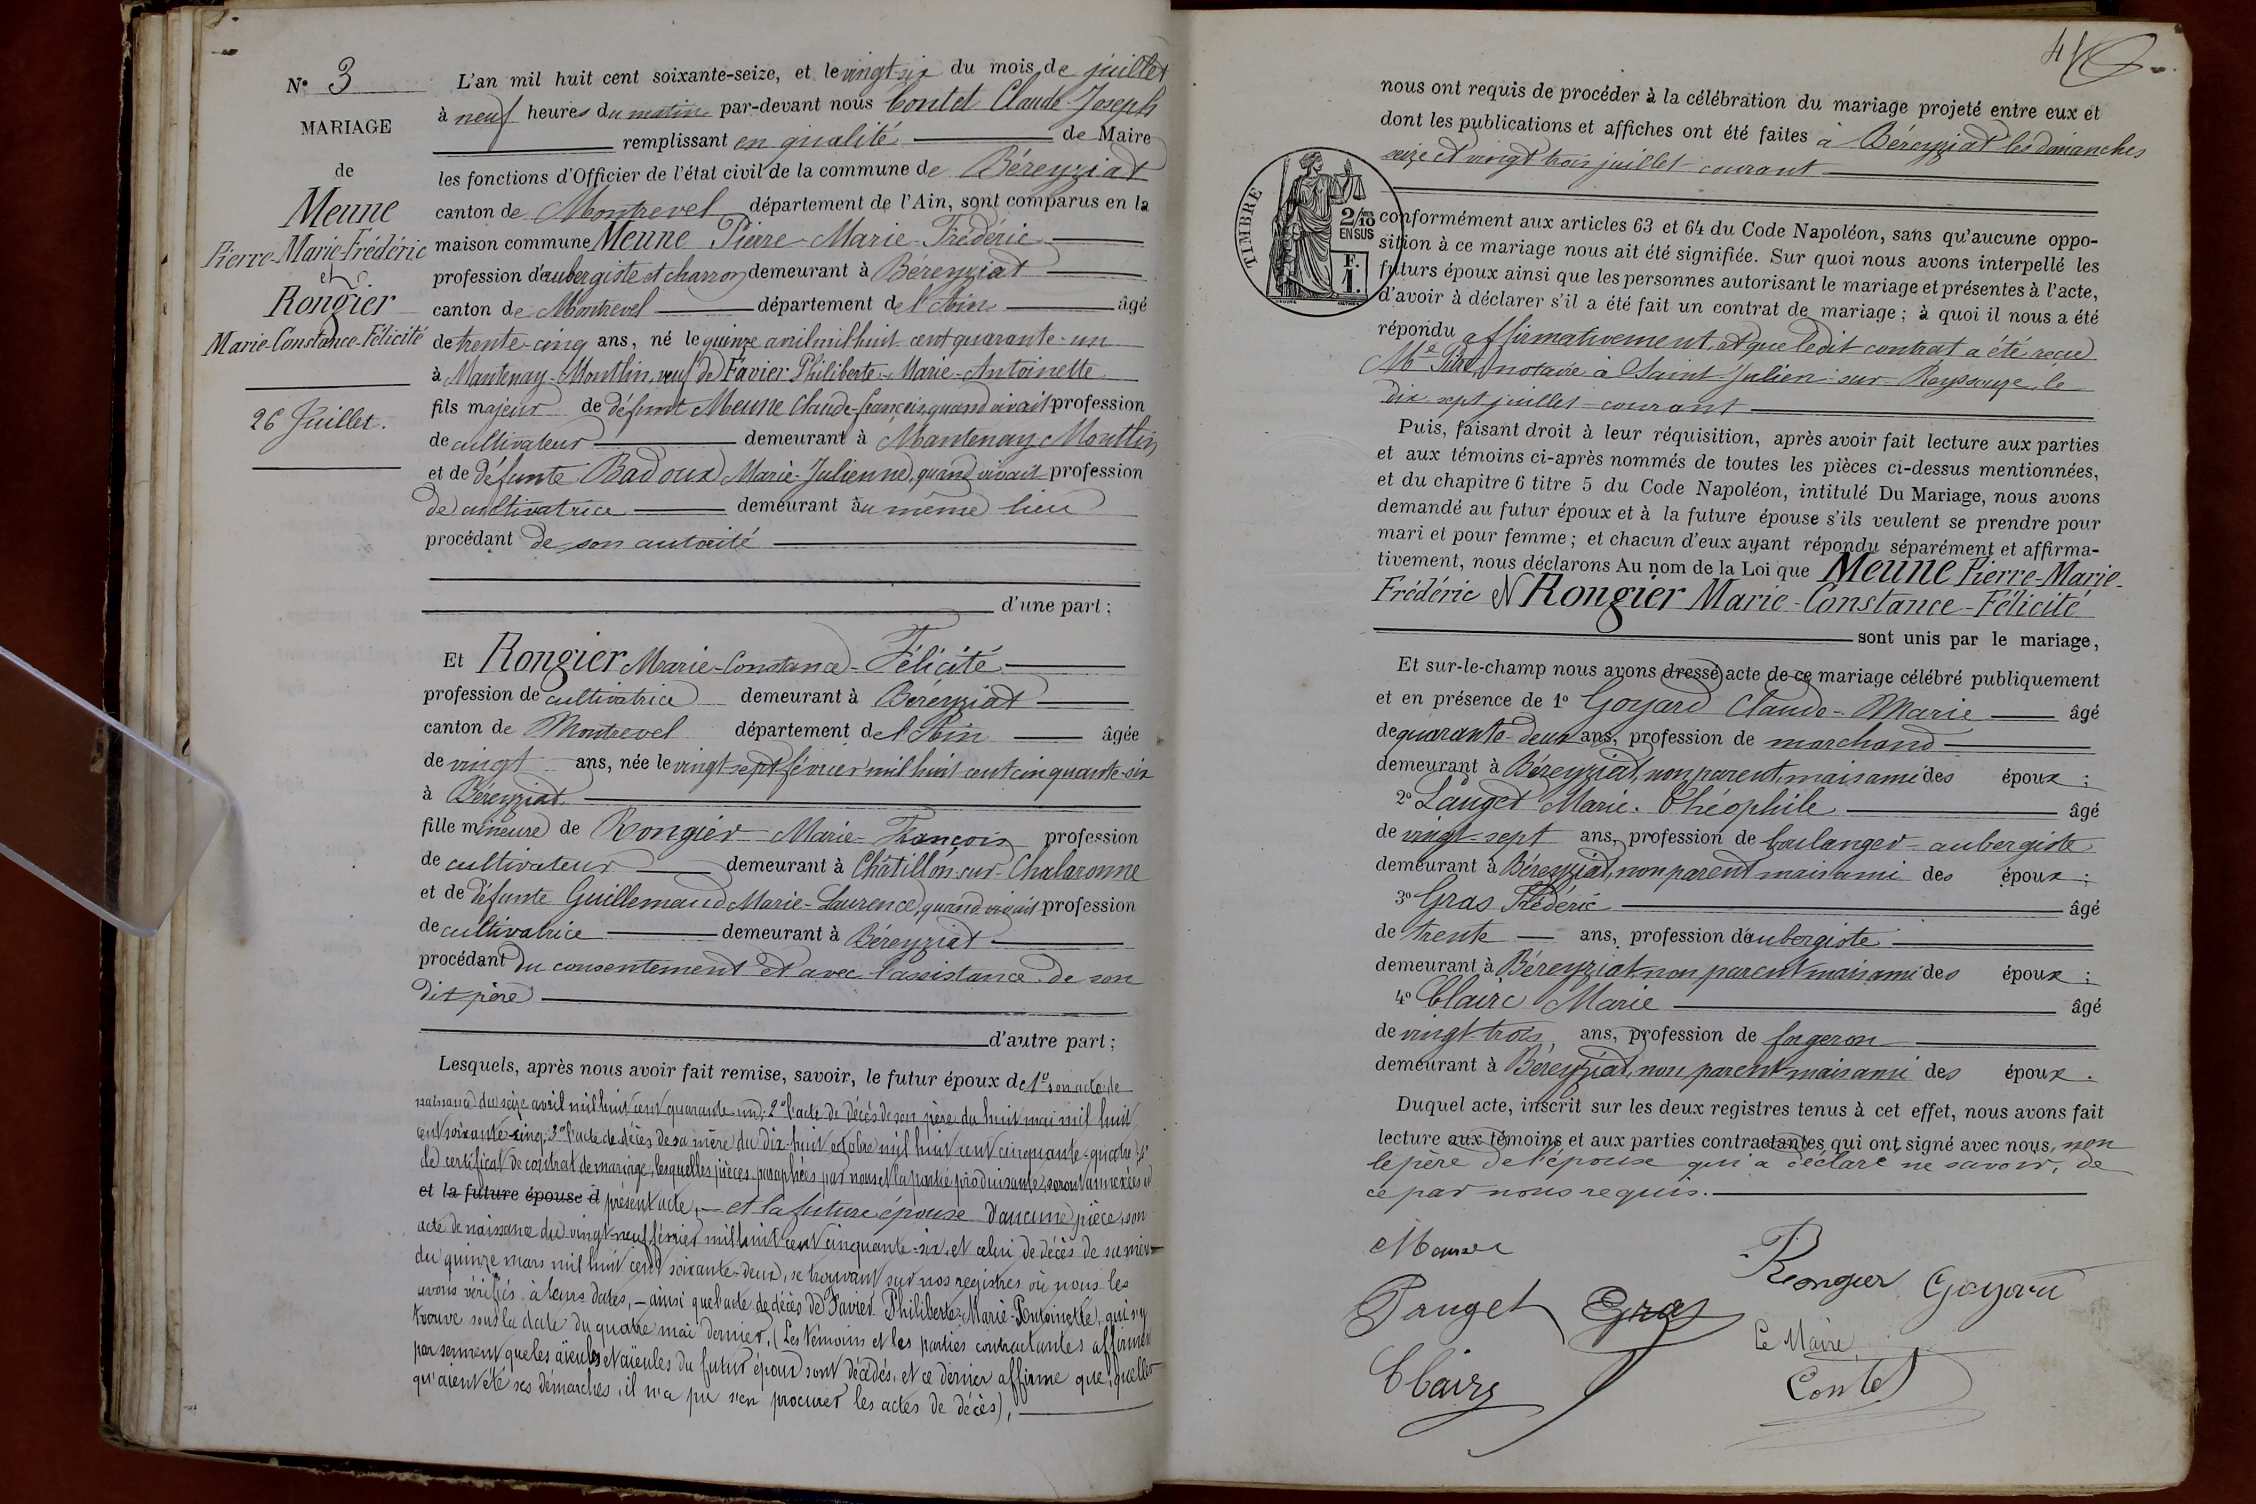 N° 3
MARIAGE
de
Meune
Pierre-Marie-Frédéric
et
Rongier
Marie-Constance-Félicité
26 Juillet.
L'an mil huit cent soixante-seize, et le vingt-six du mois de juillet
à neuf heures du matin par-devant nous Contet Claude Joseph
remplissant en qualité de Maire
les fonctions d'Officier de l'état civil de la commune de Béreyziat
canton de Montrevel département de l'Ain, sont comparus en la
maison commune Meune Pierre-Marie-Frédéric
profession d'aubergiste et charron demeurant à Béreyziat
canton de Montrevel département de l'Ain âgé
de trente-cinq ans, né le quinze avril mil huit cent quarante-un
à Mantenay-Montlin, veuf de Favier Philiberte-Marie-Antoinette
fils majeur de défunt Meune Claude-françois, quand vivait profession
de cultivateur demeurant à Mantenay-Montlin
et de défunte Badoux Marie-Julienne, quand vivait profession
de cultivatrice demeurant au même lieu
procédant de son autorité
d'une part ;
Et Rongier Marie-Constance-Félicité
profession de cultivatrice demeurant à Béreyziat
canton de Montrevel département de l'Ain âgée
de vingt ans, née le vingt-sept février mil huit cent cinquante-six
à Béreyziat
fille mineure de Rongier Marie-François profession
de cultivateur demeurant à Châtillon-sur-Chalaronne
et de défunte Guillemaud Marie-Laurence, quand vivait profession
de cultivatrice demeurant à Béreyziat
procédant du consentement et avec l'assistance de son
dit père
d'autre part ;
Lesquels, après nous avoir fait remise, savoir, le futur époux de 1° son acte de
naissance du seize avril mil huit cent quarante-un; 2° l'acte de décès de son père du huit mai mil huit
cent soixante-cinq; 3° l'acte de décès de sa mère du dix-huit octobre mil huit cent cinquante-quatre; 4°
le certificat de contrat de mariage, lesquelles pièces paraphées par nous et la partie produisante, seront annexées au
et la future épouse d présent acte, — et la future épouse d'aucune pièce, son
acte de naissance du vingt-neuf février mil huit cent cinquante-six, et celui de décès de sa mère
du quinze mars mil huit cent soixante-deux, se trouvant sur nos registres où nous les
avons vérifiés à leurs dates, — ainsi que l'acte de décès de Favier Philiberte-Marie-Antoinette, qui s'y
trouve sous la date du quatre mai dernier, (Les témoins et les parties contractantes affirment
par serment que les aïeuls et aïeules du futur époux sont décédés, et ce dernier affirme que, quelles
qu'aient été ses démarches, il n'a pu s'en procurer les actes de décès),
nous ont requis de procéder à la célébration du mariage projeté entre eux et
dont les publications et affiches ont été faites à Béreyziat les dimanches
seize et vingt trois juillet courant
TIMBRE
2/10
EN SUS
F.
1.
conformément aux articles 63 et 64 du Code Napoléon, sans qu'aucune oppo-
sition à ce mariage nous ait été signifiée. Sur quoi nous avons interpellé les
futurs époux ainsi que les personnes autorisant le mariage et présentes à l'acte,
d'avoir à déclarer s'il a été fait un contrat de mariage ; à quoi il nous a été
répondu affirmativement, et que ledit contrat a été reçu
Me notaire à Saint-Julien-sur-Reyssouze, le
dix-sept juillet courant
Puis, faisant droit à leur réquisition, après avoir fait lecture aux parties
et aux témoins ci-après nommés de toutes les pièces ci-dessus mentionnées,
et du chapitre 6 titre 5 du Code Napoléon, intitulé Du Mariage, nous avons
demandé au futur époux et à la future épouse s'ils veulent se prendre pour
mari et pour femme ; et chacun d'eux ayant répondu séparément et affirma-
tivement, nous déclarons Au nom de la Loi que Meune Pierre-Marie-
Frédéric et Rongier Marie-Constance-Félicité
sont unis par le mariage,
Et sur-le-champ nous avons dressé acte de ce mariage célébré publiquement
et en présence de 1° Goyard Claude-Marie âgé
de quarante-deux ans, profession de marchand
demeurant à Béreyziat, non parent, mais ami des époux ;
2° Pauget Marie-Théophile âgé
de vingt-sept ans, profession de boulanger-aubergiste
demeurant à Béreyziat, non parent mais ami des époux ;
3° Gras Frédéric âgé
de trente ans, profession d'aubergiste
demeurant à Béreyziat non parent mais ami des époux ;
4° Claire Marie âgé
de vingt-trois, ans, profession de forgeron
demeurant à Béreyziat, non parent mais ami des époux.
Duquel acte, inscrit sur les deux registres tenus à cet effet, nous avons fait
lecture aux témoins et aux parties contractantes qui ont signé avec nous, non
le père de l'épouse qui a déclaré ne savoir, de
ce par nous requis.
Meune
Rongier
Goyard
Pauget
Gras
Le Maire,
Claire
Contet